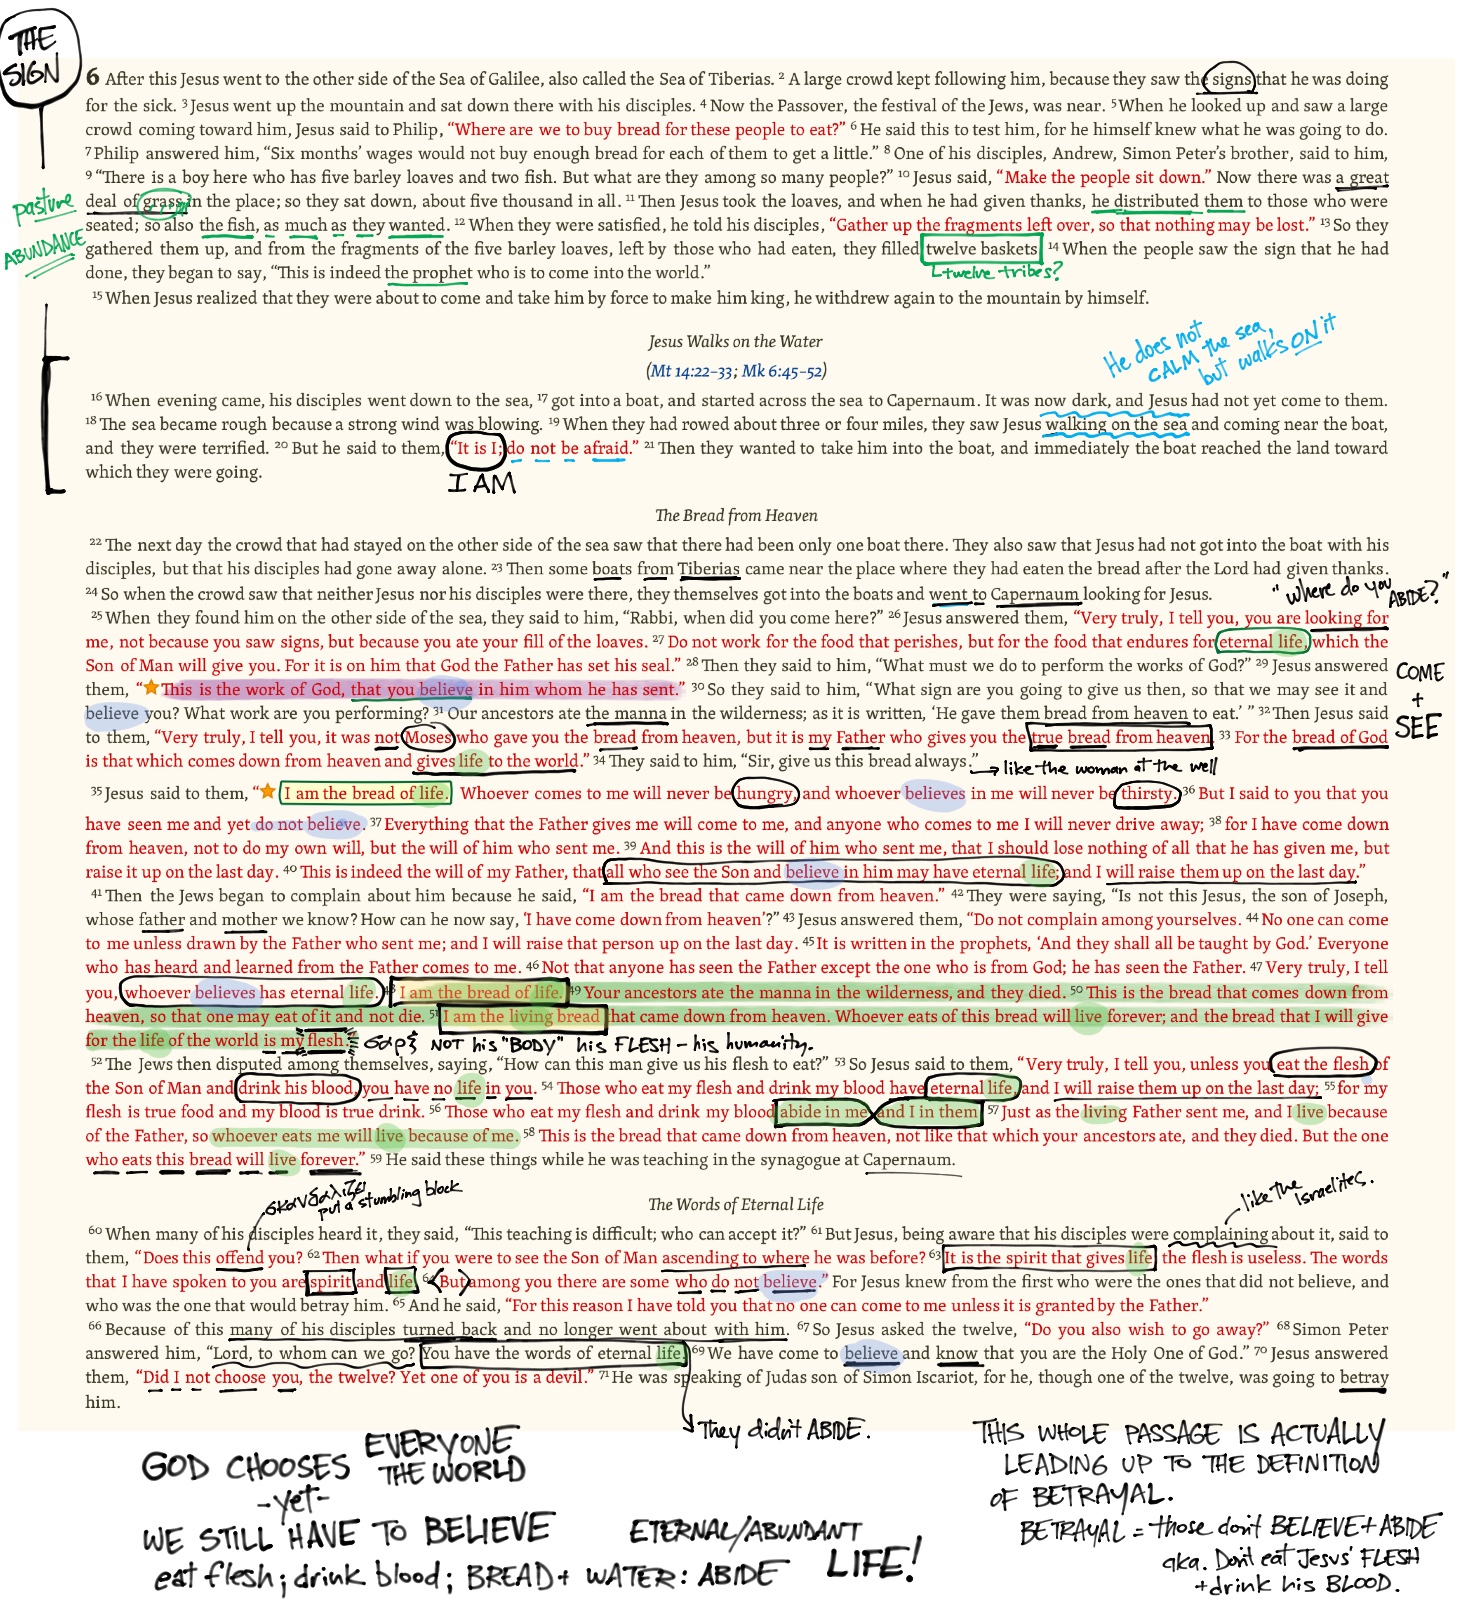 THE
SIGN
6 After this Jesus went to the other side of the Sea of Galilee, also called the Sea of Tiberias. 2 A large crowd kept following him, because they saw the signs that he was doing
for the sick. 3 Jesus went up the mountain and sat down there with his disciples. 4 Now the Passover, the festival of the Jews, was near. 5 When he looked up and saw a large
crowd coming toward him, Jesus said to Philip, “Where are we to buy bread for these people to eat?” 6 He said this to test him, for he himself knew what he was going to do.
7 Philip answered him, “Six months’ wages would not buy enough bread for each of them to get a little.” 8 One of his disciples, Andrew, Simon Peter’s brother, said to him,
9 “There is a boy here who has five barley loaves and two fish. But what are they among so many people?” 10 Jesus said, “Make the people sit down.” Now there was a great
deal of grass in the place; so they sat down, about five thousand in all. 11 Then Jesus took the loaves, and when he had given thanks, he distributed them to those who were
seated; so also the fish, as much as they wanted. 12 When they were satisfied, he told his disciples, “Gather up the fragments left over, so that nothing may be lost.” 13 So they
gathered them up, and from the fragments of the five barley loaves, left by those who had eaten, they filled twelve baskets. 14 When the people saw the sign that he had
done, they began to say, “This is indeed the prophet who is to come into the world.”
pasture
ABUNDANCE
twelve tribes?
15 When Jesus realized that they were about to come and take him by force to make him king, he withdrew again to the mountain by himself.
Jesus Walks on the Water
(Mt 14:22–33; Mk 6:45–52)
He does not
CALM the sea,
but walks ON it
16 When evening came, his disciples went down to the sea, 17 got into a boat, and started across the sea to Capernaum. It was now dark, and Jesus had not yet come to them.
18 The sea became rough because a strong wind was blowing. 19 When they had rowed about three or four miles, they saw Jesus walking on the sea and coming near the boat,
and they were terrified. 20 But he said to them, “It is I; do not be afraid.” 21 Then they wanted to take him into the boat, and immediately the boat reached the land toward
which they were going.
I AM
The Bread from Heaven
22 The next day the crowd that had stayed on the other side of the sea saw that there had been only one boat there. They also saw that Jesus had not got into the boat with his
disciples, but that his disciples had gone away alone. 23 Then some boats from Tiberias came near the place where they had eaten the bread after the Lord had given thanks.
24 So when the crowd saw that neither Jesus nor his disciples were there, they themselves got into the boats and went to Capernaum looking for Jesus.
"where do you
ABIDE?"
25 When they found him on the other side of the sea, they said to him, “Rabbi, when did you come here?” 26 Jesus answered them, “Very truly, I tell you, you are looking for
me, not because you saw signs, but because you ate your fill of the loaves. 27 Do not work for the food that perishes, but for the food that endures for eternal life, which the
Son of Man will give you. For it is on him that God the Father has set his seal.” 28 Then they said to him, “What must we do to perform the works of God?” 29 Jesus answered
them, “This is the work of God, that you believe in him whom he has sent.” 30 So they said to him, “What sign are you going to give us then, so that we may see it and
believe you? What work are you performing? 31 Our ancestors ate the manna in the wilderness; as it is written, ‘He gave them bread from heaven to eat.’ ” 32 Then Jesus said
to them, “Very truly, I tell you, it was not Moses who gave you the bread from heaven, but it is my Father who gives you the true bread from heaven. 33 For the bread of God
is that which comes down from heaven and gives life to the world.” 34 They said to him, “Sir, give us this bread always.”
COME
+
SEE
like the woman at the well
35 Jesus said to them, “I am the bread of life. Whoever comes to me will never be hungry, and whoever believes in me will never be thirsty. 36 But I said to you that you
have seen me and yet do not believe. 37 Everything that the Father gives me will come to me, and anyone who comes to me I will never drive away; 38 for I have come down
from heaven, not to do my own will, but the will of him who sent me. 39 And this is the will of him who sent me, that I should lose nothing of all that he has given me, but
raise it up on the last day. 40 This is indeed the will of my Father, that all who see the Son and believe in him may have eternal life; and I will raise them up on the last day.”
41 Then the Jews began to complain about him because he said, “I am the bread that came down from heaven.” 42 They were saying, “Is not this Jesus, the son of Joseph,
whose father and mother we know? How can he now say, ‘I have come down from heaven’?” 43 Jesus answered them, “Do not complain among yourselves. 44 No one can come
to me unless drawn by the Father who sent me; and I will raise that person up on the last day. 45 It is written in the prophets, ‘And they shall all be taught by God.’ Everyone
who has heard and learned from the Father comes to me. 46 Not that anyone has seen the Father except the one who is from God; he has seen the Father. 47 Very truly, I tell
you, whoever believes has eternal life. 48 I am the bread of life. 49 Your ancestors ate the manna in the wilderness, and they died. 50 This is the bread that comes down from
heaven, so that one may eat of it and not die. 51 I am the living bread that came down from heaven. Whoever eats of this bread will live forever; and the bread that I will give
for the life of the world is my flesh.”
σαρξ NOT his "BODY" his FLESH - his humanity.
52 The Jews then disputed among themselves, saying, “How can this man give us his flesh to eat?” 53 So Jesus said to them, “Very truly, I tell you, unless you eat the flesh of
the Son of Man and drink his blood, you have no life in you. 54 Those who eat my flesh and drink my blood have eternal life, and I will raise them up on the last day; 55 for my
flesh is true food and my blood is true drink. 56 Those who eat my flesh and drink my blood abide in me, and I in them. 57 Just as the living Father sent me, and I live because
of the Father, so whoever eats me will live because of me. 58 This is the bread that came down from heaven, not like that which your ancestors ate, and they died. But the one
who eats this bread will live forever.” 59 He said these things while he was teaching in the synagogue at Capernaum.
σκανδαλιζει
put a stumbling block
The Words of Eternal Life
like the
Israelites.
60 When many of his disciples heard it, they said, “This teaching is difficult; who can accept it?” 61 But Jesus, being aware that his disciples were complaining about it, said to
them, “Does this offend you? 62 Then what if you were to see the Son of Man ascending to where he was before? 63 It is the spirit that gives life; the flesh is useless. The words
that I have spoken to you are spirit and life. 64 But among you there are some who do not believe.” For Jesus knew from the first who were the ones that did not believe, and
who was the one that would betray him. 65 And he said, “For this reason I have told you that no one can come to me unless it is granted by the Father.”
66 Because of this many of his disciples turned back and no longer went about with him. 67 So Jesus asked the twelve, “Do you also wish to go away?” 68 Simon Peter
answered him, “Lord, to whom can we go? You have the words of eternal life. 69 We have come to believe and know that you are the Holy One of God.” 70 Jesus answered
them, “Did I not choose you, the twelve? Yet one of you is a devil.” 71 He was speaking of Judas son of Simon Iscariot, for he, though one of the twelve, was going to betray
him.
They didn't ABIDE.
GOD CHOOSES EVERYONE
THE WORLD
-yet-
WE STILL HAVE TO BELIEVE
eat flesh; drink blood; BREAD + WATER: ABIDE
ETERNAL/ABUNDANT
LIFE!
THIS WHOLE PASSAGE IS ACTUALLY
LEADING UP TO THE DEFINITION
OF BETRAYAL.
BETRAYAL = those don't BELIEVE + ABIDE
aka. Don't eat Jesus' FLESH
+ drink his BLOOD.